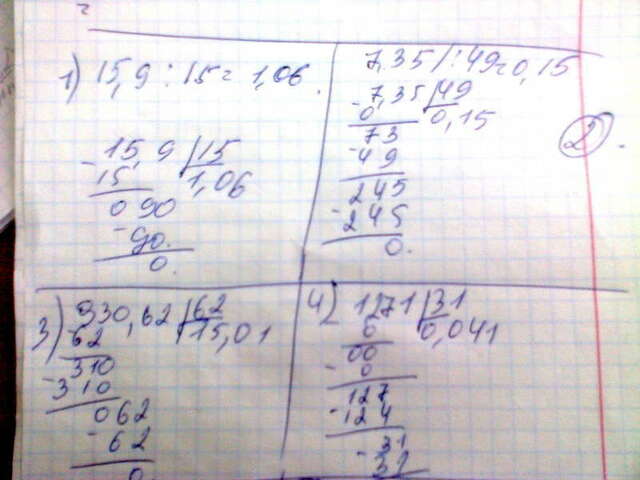 1) 15,9 : 15 = 1,06.
15,9 | 15
- 15
1,06
0 90
- 90.
0.
7,35 : 49 = 0,15
7,35 | 49
- 0
0,15
73
- 49
245
- 245
0.
2.
3) 930,62 | 62
62
15,01
310
- 310
062
- 62
0
4) 1271 | 31
0
0,041
00
- 0
127
- 124
31
- 31